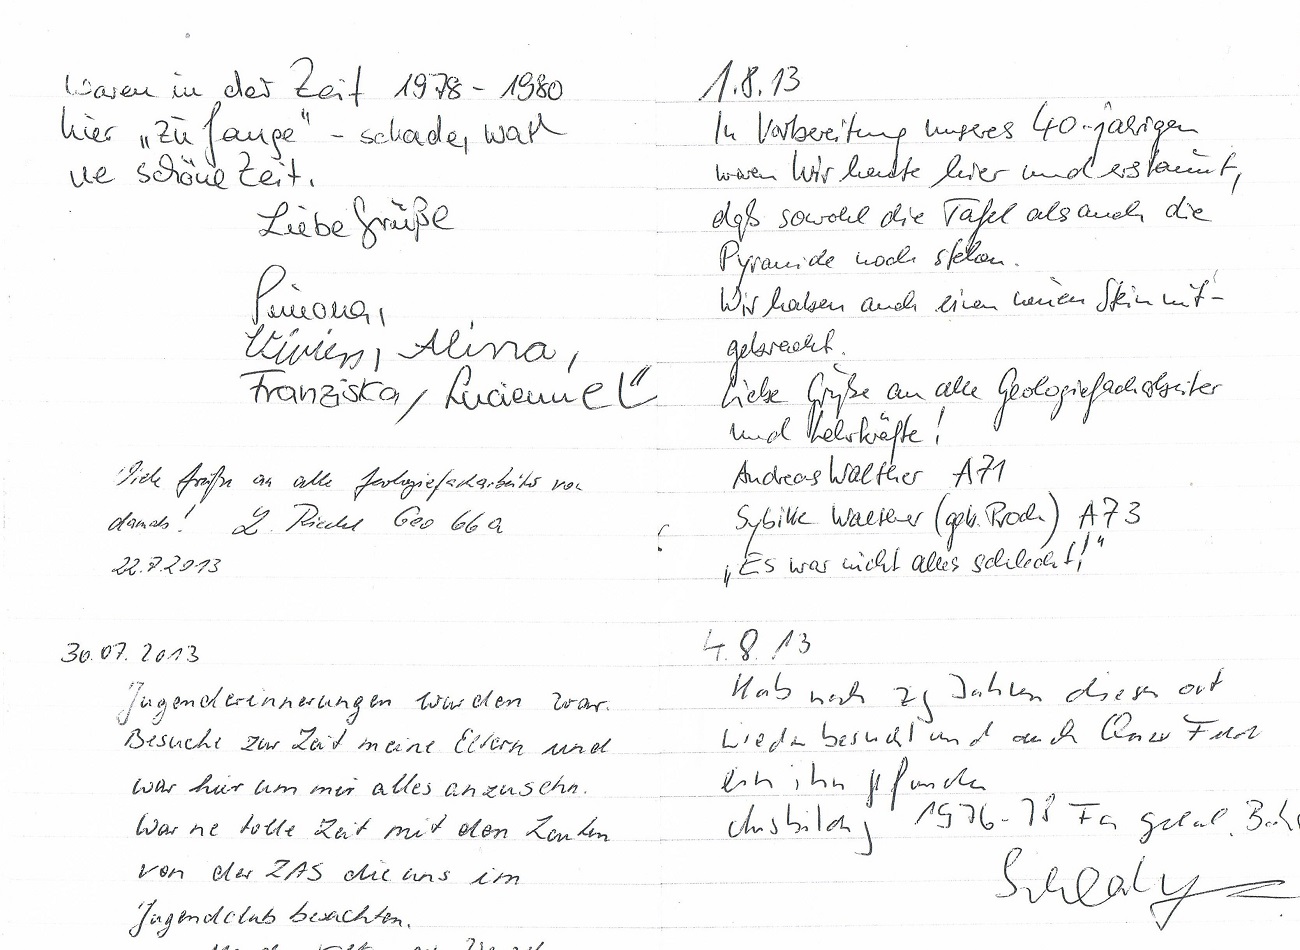 waren in der Zeit 1978 - 1980
hier „zu gange“ - schade, war
ne schöne Zeit.
Liebe Grüße
Simona,
Vivien, Alina,
Franziska, Lucienne
Viele Grüße an alle Geologiefacharbeiter von
damals! Riedel Geo 66 a
22.7.2013
30.07.2013
Jugenderinnerungen wurden war.
Besuche zur Zeit meine Eltern und
war hier um mir alles anzusehn.
War ne tolle Zeit mit den Leuten
von der ZAS die uns im
Jugendclub besuchten.
1.8.13
In Vorbereitung unseres 40-jährigen
waren wir heute hier und erstaunt,
daß sowohl die Tafel als auch die
Pyramide noch stehen.
Wir haben auch einen neuen Stein mit-
gebracht.
Liebe Grüße an alle Geologiefacharbeiter
und Lehrkräfte!
Andreas Walther A71
Sybille Walther (geb. Proch) A73
„Es war nicht alles schlecht!“
4.8.13
Hab nach Jahren diesen ort
wieder besucht und auch
ein ihn gefunden
Ausbildung 1976-78 Fa geol.